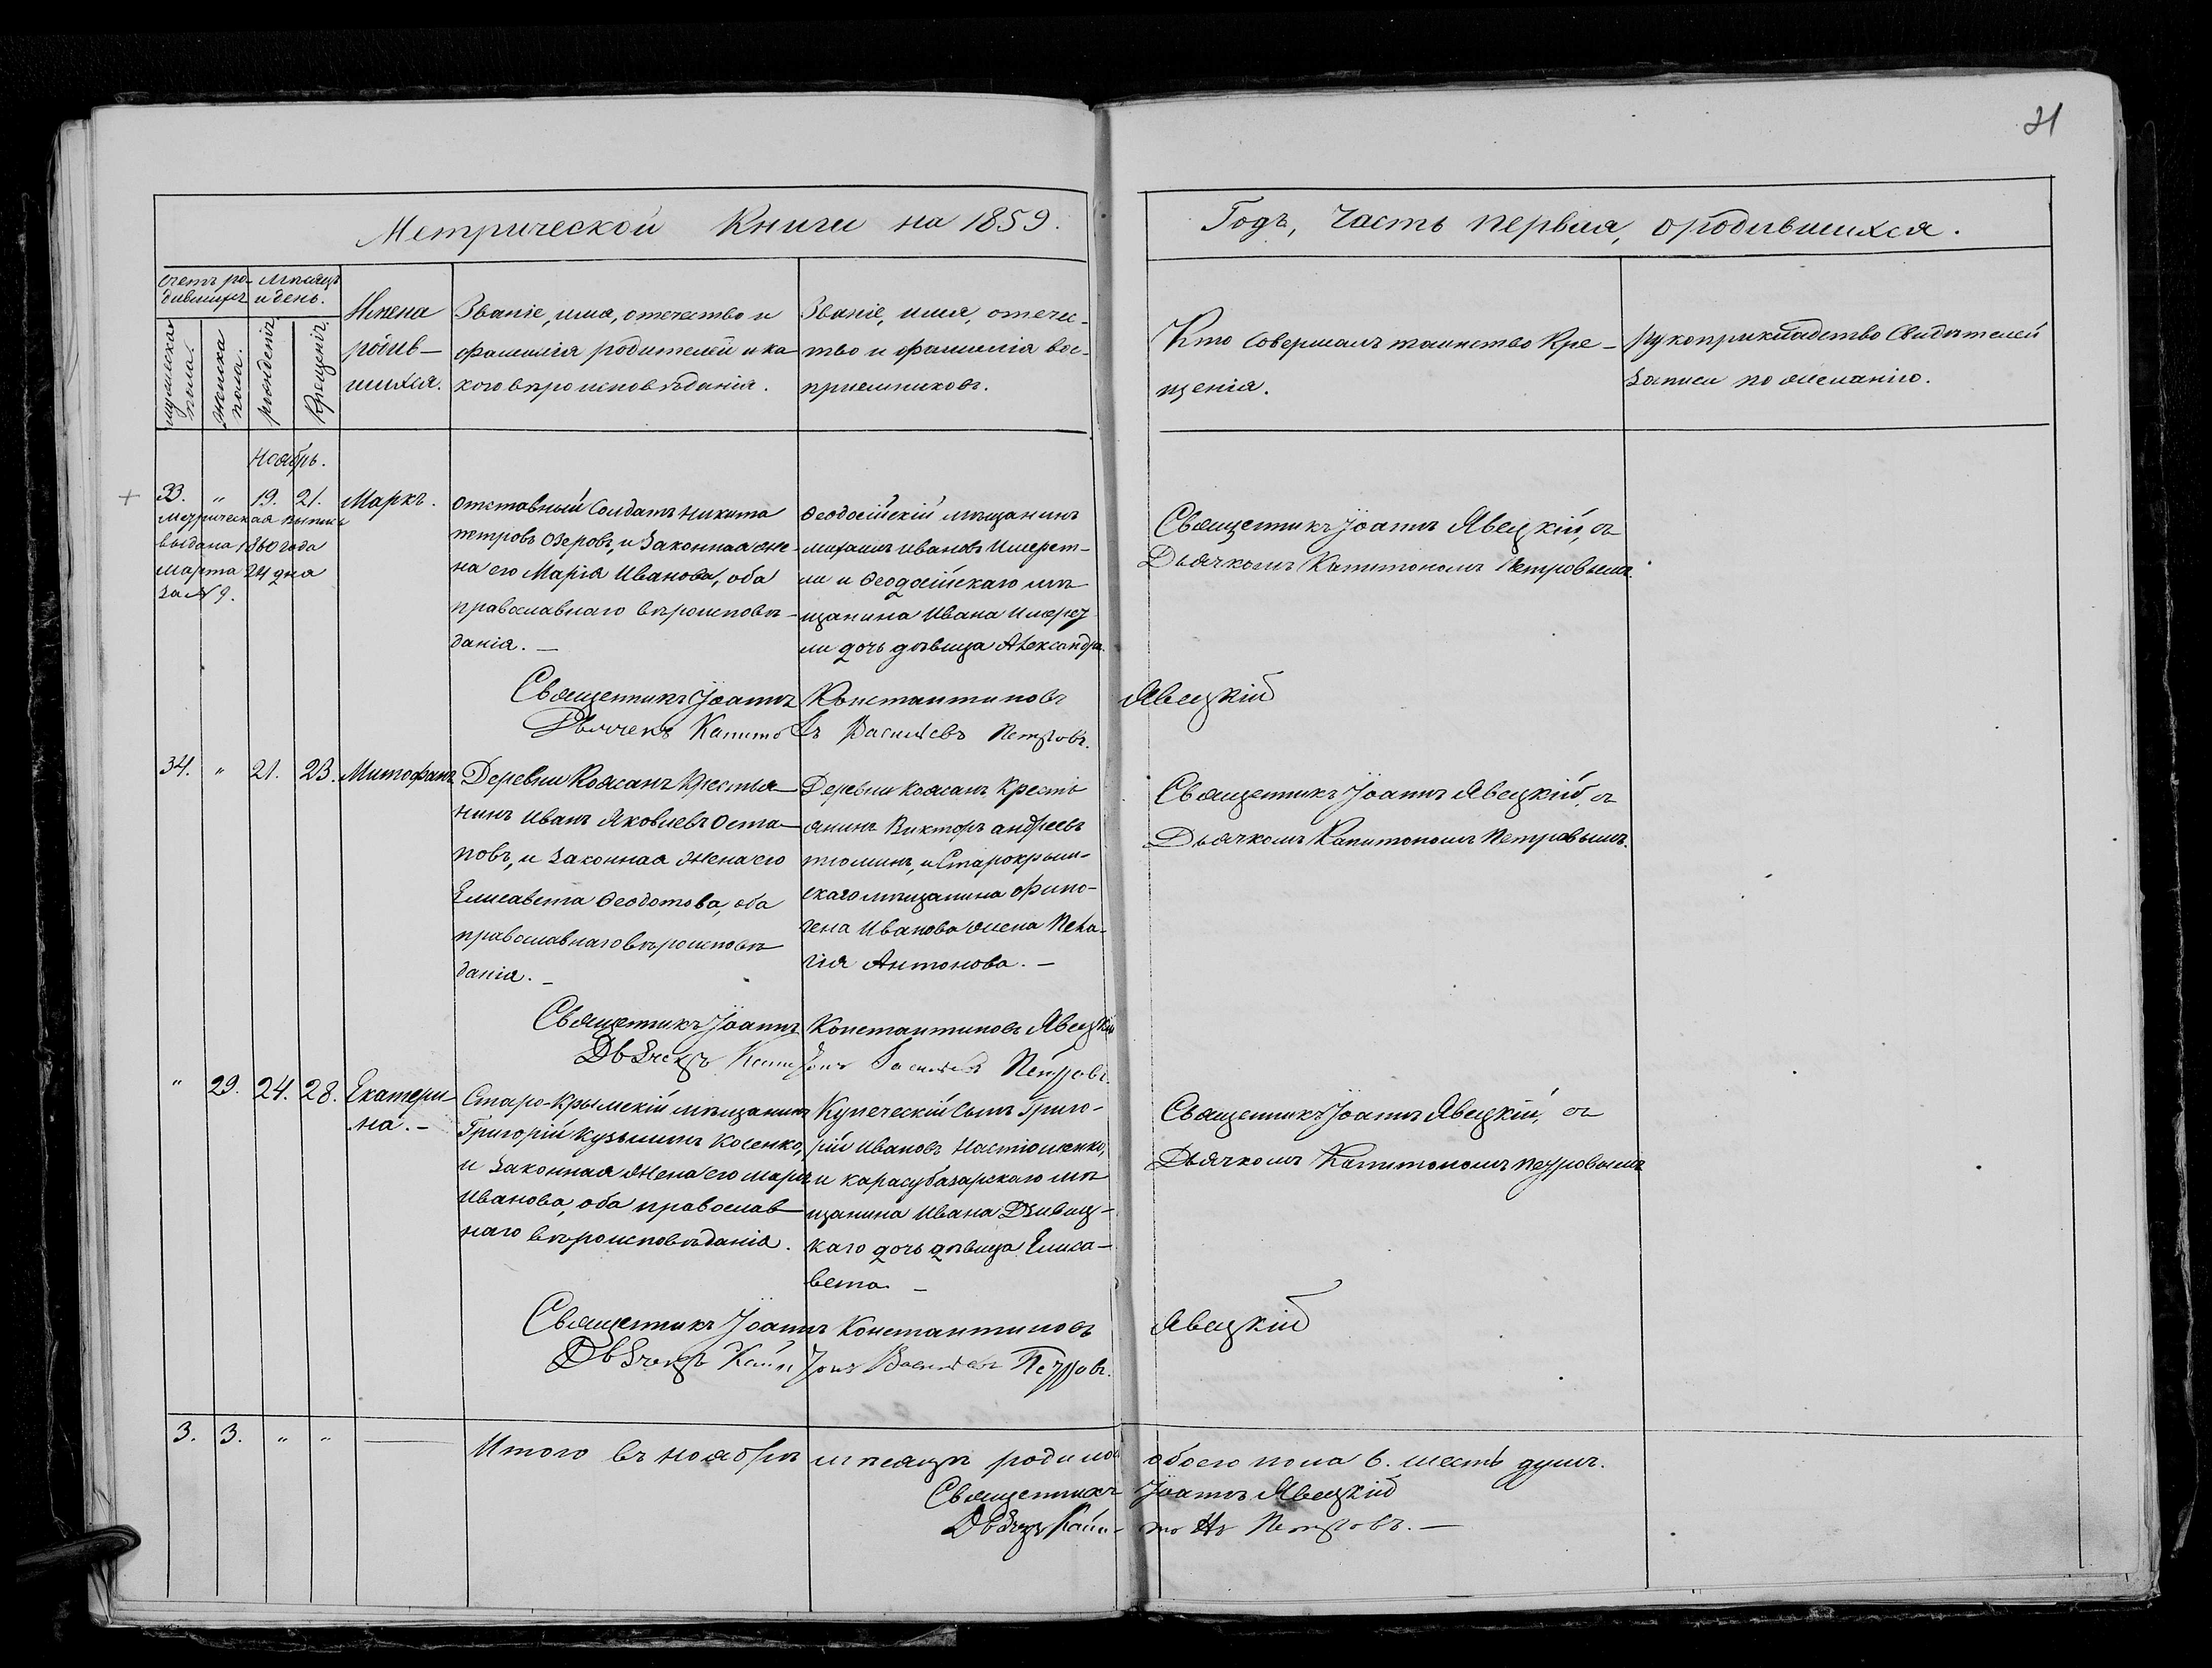 31
Метрической Книги на 1859.
Годъ, Часть первая, о родившихся.
Счетъ ро-
дившихъ
Мѣсяцъ
и день.
мужеска
пола.
женска
пола.
рожденія
Крещенія
Имена
родив-
шихся.
Званіе, имя, отечество и
фамилія родителей и ка
кого вѣроисповѣданія.
Званіе, имя, отече-
тво и фамилія вос-
приемниковъ.
Кто совершалъ таинство Кре-
щенія.
рукоприкладство Свидѣтелей
записи по желанію.
Ноябрь.
33. " 19. 21. Маркъ.
Метрическая выпись
выдана 1860 года
Марта 24 дня
за № 9.
Отставный Солдатъ Никита
петровъ Озеровъ, и Законная же-
на его Марія Иванова, оба
православнаго вѣроисповѣ-
данія. —
Ѳеодосійскій мѣщанинъ
михаилъ ивановъ Имерет-
ли и Ѳеодосійскаго мѣ
щанина Ивана Имерет
ли дочь дѣвица Александра.
Священникъ Іоаннъ Явецкій, съ
Дьячкомъ Капитономъ Петровымъ.
Священникъ Іоаннъ Константиновъ Явецкій
Дьячекъ Капитонъ Васильевъ Петровъ.
34. " 21. 23. Митофанъ
Деревни Кожанъ Крестья
нинъ Иванъ Яковлевъ Оста-
повъ, и Законная Жена его
Елисавета Ѳеодотова, оба
православнаго вѣроисповѣ
данія. —
Деревни Кожанъ Кресть
янинъ Викторъ андреевъ
тюминъ, и Старокрым-
скаго мѣщанина Фино-
гена Иванова жена Пела-
гія Антонова. —
Священникъ Іоаннъ Явецкій, съ
Дьячкомъ Капитономъ Петровымъ.
Священникъ Іоаннъ Константиновъ Явецкій
Дьячекъ Капитонъ Васильевъ Петровъ.
" 29. 24. 28. Екатери
на. —
Старо-Крымскій мѣщанинъ
Григорій Кузьминъ Косенко,
и Законная Жена его Марія
Иванова, оба православ-
наго вѣроисповѣданія.
Купеческій Сынъ Григо-
рій Ивановъ Настюженко,
и карасубазарскаго мѣ
щанина Ивана Дзивиц-
каго дочь дѣвица Елиса-
вета —
Священникъ Іоаннъ Явецкій, съ
Дьячкомъ Капитономъ Петровымъ
Священникъ Іоаннъ Константиновъ Явецкій
Дьячекъ Капитонъ Васильевъ Петровъ.
3. 3. " " —
Итого въ ноябрѣ мѣсяцѣ родилось обоего пола 6. шесть душъ.
Священникъ Іоаннъ Явецкій
Дьячекъ Капи-тонъ Петровъ. —